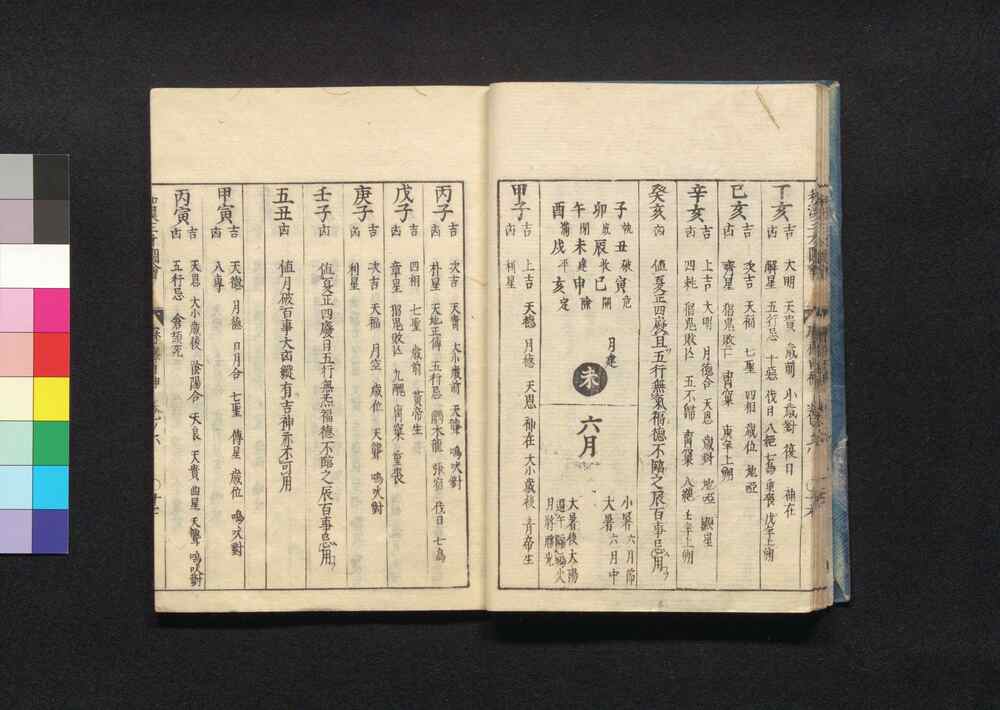 丁亥 吉 大明 天貴 歳前 小歳對 後日 神在
凶 觧星 五行忌 十惡 伐日 八絕 七鳥 重喪 戊年上朔
己亥 吉 次吉 天福 七聖 四相 歳位 地啞
凶
辛亥 吉 上吉 大明 月德合 天恩 歳對 地啞 顯星
凶 四耗 猖鬼敗亡 五不歸 八絕 壬年上朔
癸亥 凶 値夏正四廢且五行無氣福德不臨之辰百事忌用
子執 丑破 寅危
卯成 辰收 巳開
午閉 未建 申除
酉滿 戌平 亥定
月建
未
六月
小暑六月節
大暑六月中
大暑後太陽
月將勝光
甲子 吉 上吉 天德 月德 天恩 神在 大小歳後 青帝生
凶 利星
丙子 吉 次吉 天貴 大小歳前 天聾 鳴吠對
凶 朴星 天地正傳 五行忌 張宿 伐日 七鳥
戊子 吉 四相 七聖 歳前 黄帝生
凶 章星 猖鬼敗亡 九醜 重喪
庚子 吉 次吉 天福 月空 歳位 天聾 鳴吠對
凶 利星
壬子 凶 値夏正四廢日五行無炁福德不臨之辰百事忌用
五丑 凶 値月破百事大凶縱有吉神亦不可用
甲寅 吉 天德 月德 日月合 七聖 傳星 歳位 鳴吠對
凶 八專
丙寅 吉 天恩 大小歳後 陰陽合 天良 天貴 曲星 天聾 鳴吠對
凶 五行忌 倉頡死